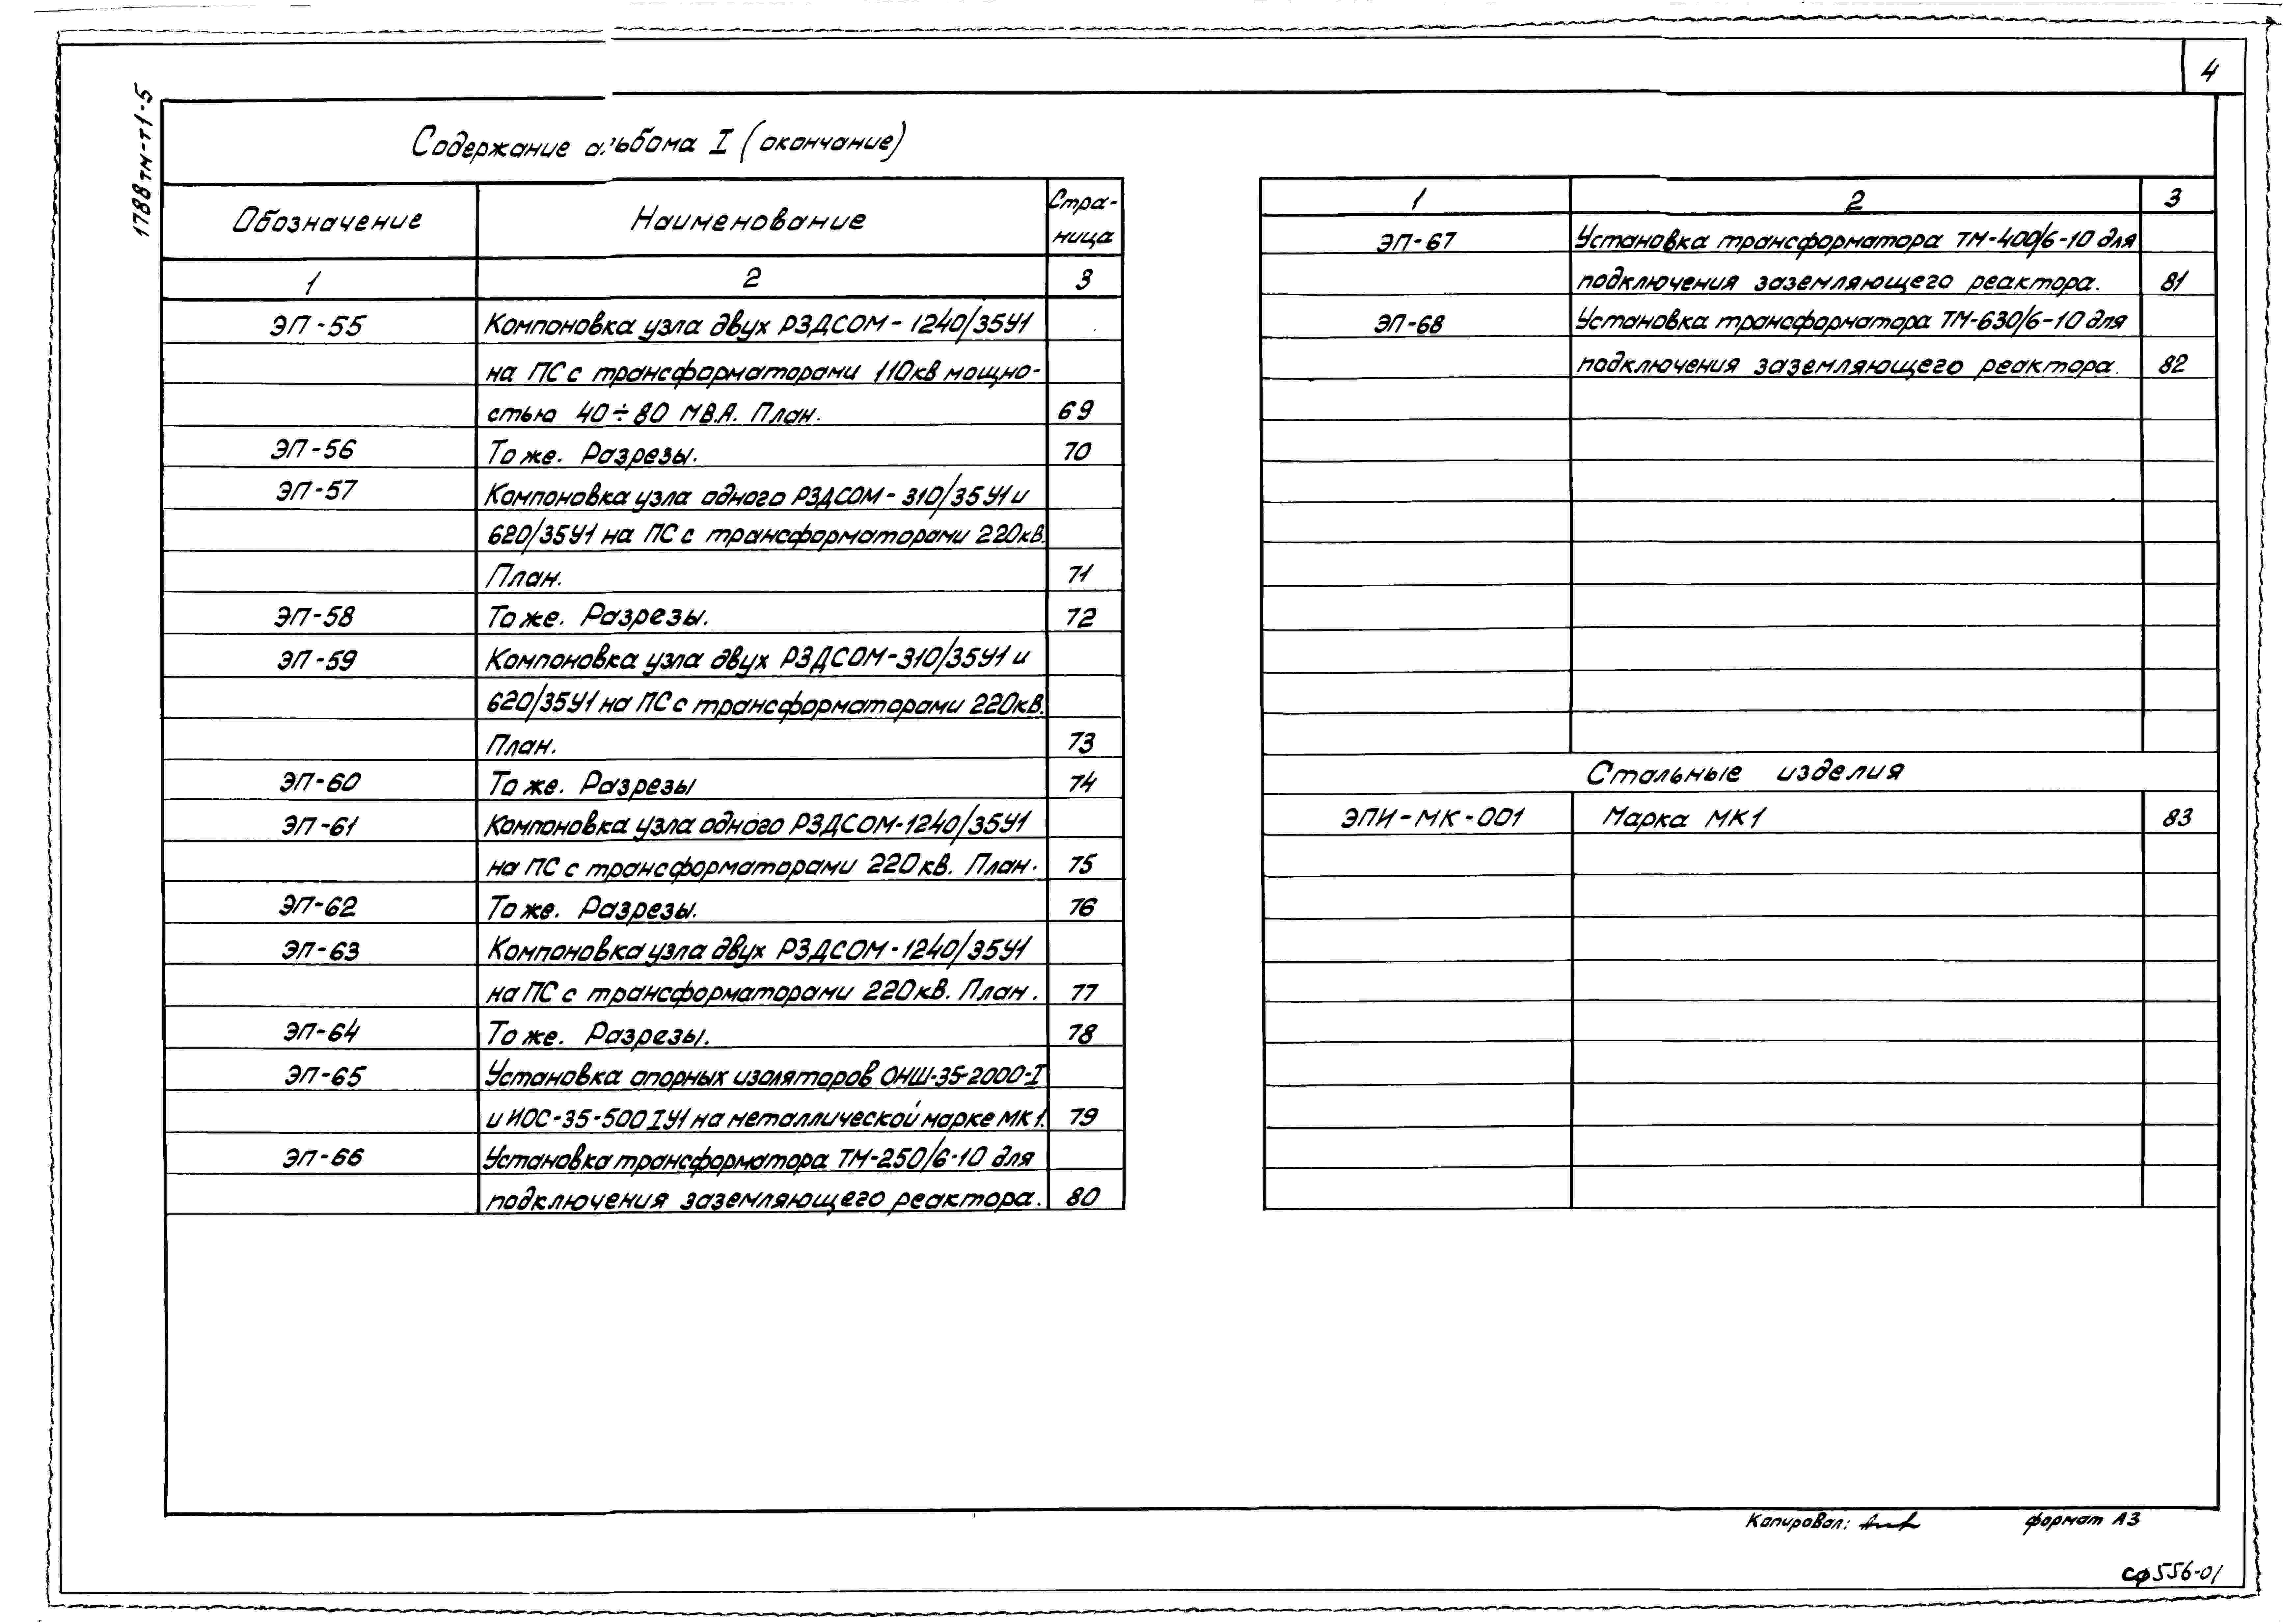 4
1788тм-т1-5
Содержание альбома I (окончание)
Обозначение Наименование Стра-
ница
1 2 3
ЭП-55 Компоновка узла двух РЗДСОМ-1240/35У1
на ПС с трансформаторами 110кв мощно-
стью 40÷80 МВ.А. План. 69
ЭП-56 То же. Разрезы. 70
ЭП-57 Компоновка узла одного РЗДСОМ-310/35У1 и
620/35У1 на ПС с трансформаторами 220кв.
План. 71
ЭП-58 То же. Разрезы. 72
ЭП-59 Компоновка узла двух РЗДСОМ-310/35У1 и
620/35У1 на ПС с трансформаторами 220кв.
План. 73
ЭП-60 То же. Разрезы 74
ЭП-61 Компоновка узла одного РЗДСОМ-1240/35У1
на ПС с трансформаторами 220кв. План. 75
ЭП-62 То же. Разрезы. 76
ЭП-63 Компоновка узла двух РЗДСОМ-1240/35У1
на ПС с трансформаторами 220кв. План. 77
ЭП-64 То же. Разрезы. 78
ЭП-65 Установка опорных изоляторов ОНШ-35-2000-I
и ИОС-35-500IУ1 на металлической марке МК1. 79
ЭП-66 Установка трансформатора ТМ-250/6-10 для
подключения заземляющего реактора. 80
1 2 3
ЭП-67 Установка трансформатора ТМ-400/6-10 для
подключения заземляющего реактора. 81
ЭП-68 Установка трансформатора ТМ-630/6-10 для
подключения заземляющего реактора. 82
Стальные изделия
ЭПИ-МК-001 Марка МК1 83
Копировал: формат А3
сф556-01